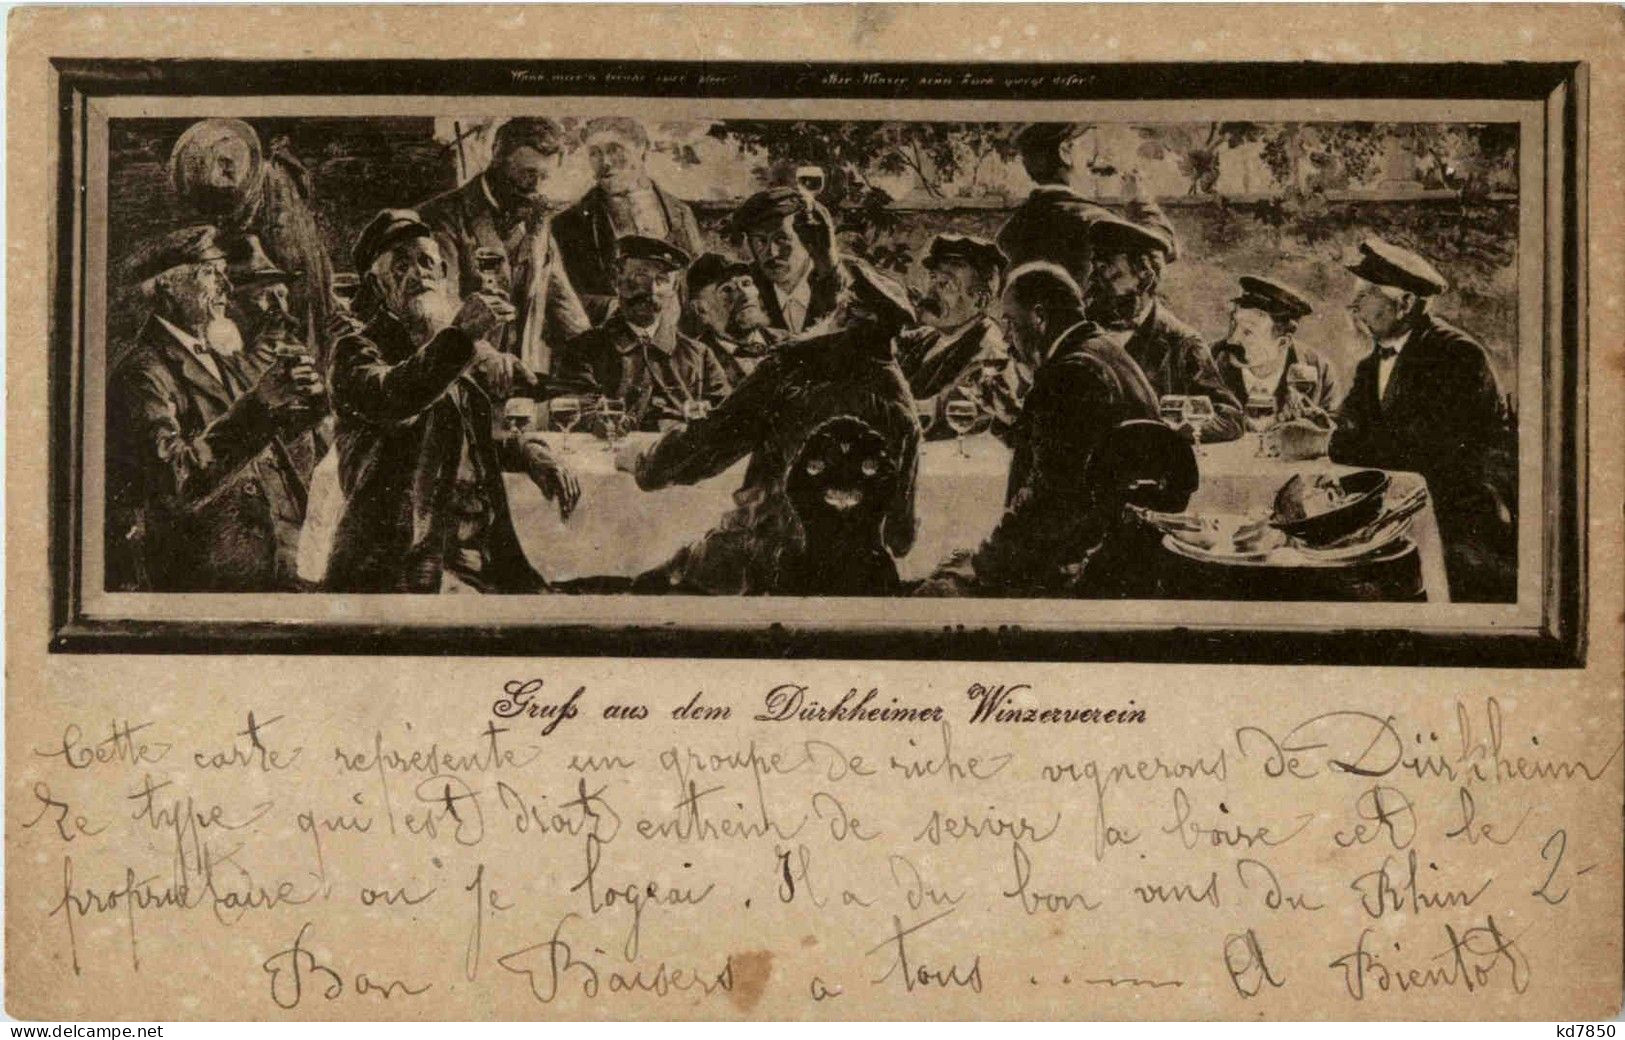 Gruß aus dem Dürkheimer Winzerverein
Cette carte représente un groupe de riche vignerons de Dürkheim
Le type qui est droit entrein de servir a boire cet le
propriétaire ou je logeai. Il a du bon vins du Rhin 2-
Bon Baisers a tous ..—— A Bientot
delcampe.net
kd7850